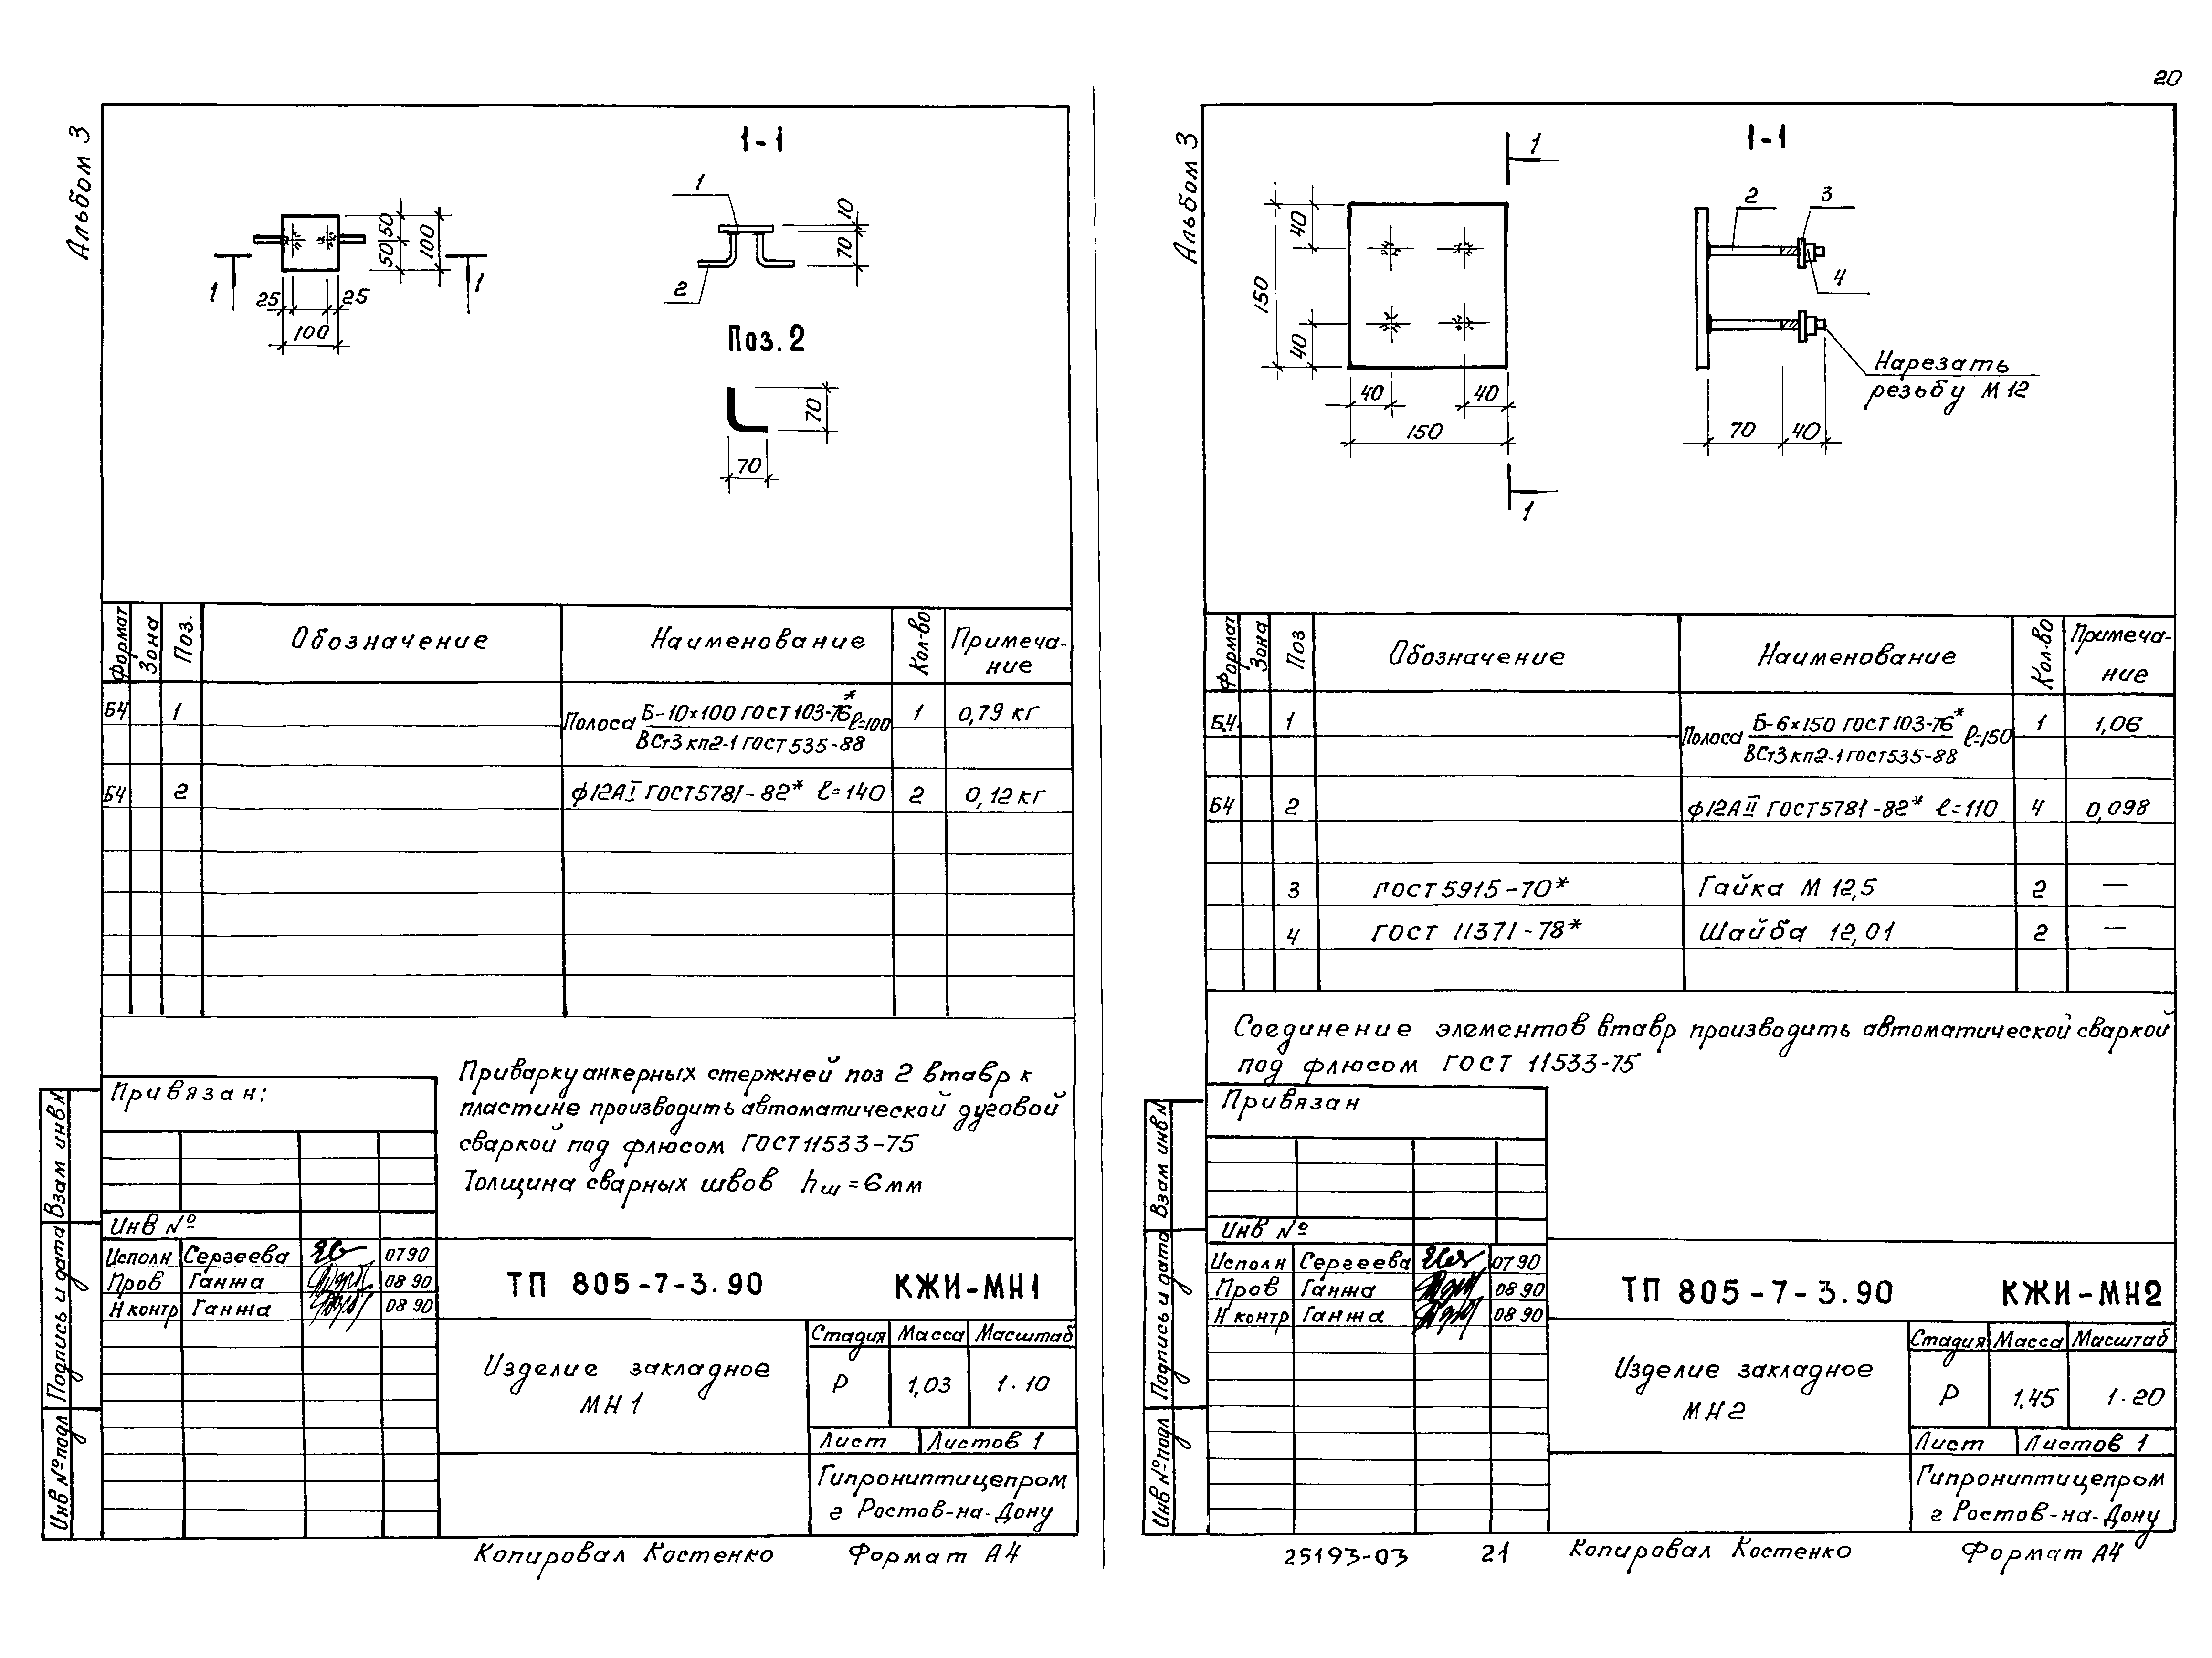 20
Альбом 3
1-1
1
2
10
70
50
50
100
1
1
25
25
100
Поз. 2
70
70
Формат Зона Поз. Обозначение Наименование Кол-во Примеча-
ние
Б4 1 Полоса Б-10×100 ГОСТ 103-76* ℓ=100 1 0,79 кг
ВСт3кп2-1 ГОСТ 535-88
Б4 2 ф12АI ГОСТ 5781-82* ℓ=140 2 0,12 кг
Приварку анкерных стержней поз 2 втавр к
пластине производить автоматической дуговой
сваркой под флюсом ГОСТ 11533-75
Толщина сварных швов hш=6мм
Привязан:
Инв №
Взам инв №
Подпись и дата
Инв № подл
Исполн Сергеева 07 90
Пров Ганжа 08 90
Н контр Ганжа 08 90
ТП 805-7-3.90 КЖИ-МН1
Изделие закладное
МН1
Стадия Масса Масштаб
Р 1,03 1·10
Лист Листов 1
Гипрониптицепром
г Ростов-на-Дону
Копировал Костенко Формат А4
Альбом 3
1
1-1
2
3
4
40
150
40
40
40
150
Нарезать
резьбу М12
70
40
1
Формат Зона Поз Обозначение Наименование Кол-во Примеча-
ние
Б4 1 Полоса Б-6×150 ГОСТ 103-76* ℓ=150 1 1,06
ВСт3кп2-1 ГОСТ 535-88
Б4 2 ф12АII ГОСТ 5781-82* ℓ=110 4 0,098
3 ГОСТ 5915-70* Гайка М 12,5 2 —
4 ГОСТ 11371-78* Шайба 12,01 2 —
Соединение элементов втавр производить автоматической сваркой
под флюсом ГОСТ 11533-75
Привязан
Инв №
Взам инв №
Подпись и дата
Инв № подл
Исполн Сергеева 07 90
Пров Ганжа 08 90
Н контр Ганжа 08 90
ТП 805-7-3.90 КЖИ-МН2
Изделие закладное
МН2
Стадия Масса Масштаб
Р 1.45 1·20
Лист Листов 1
Гипрониптицепром
г Ростов-на-Дону
25193-03 21 Копировал Костенко Формат А4